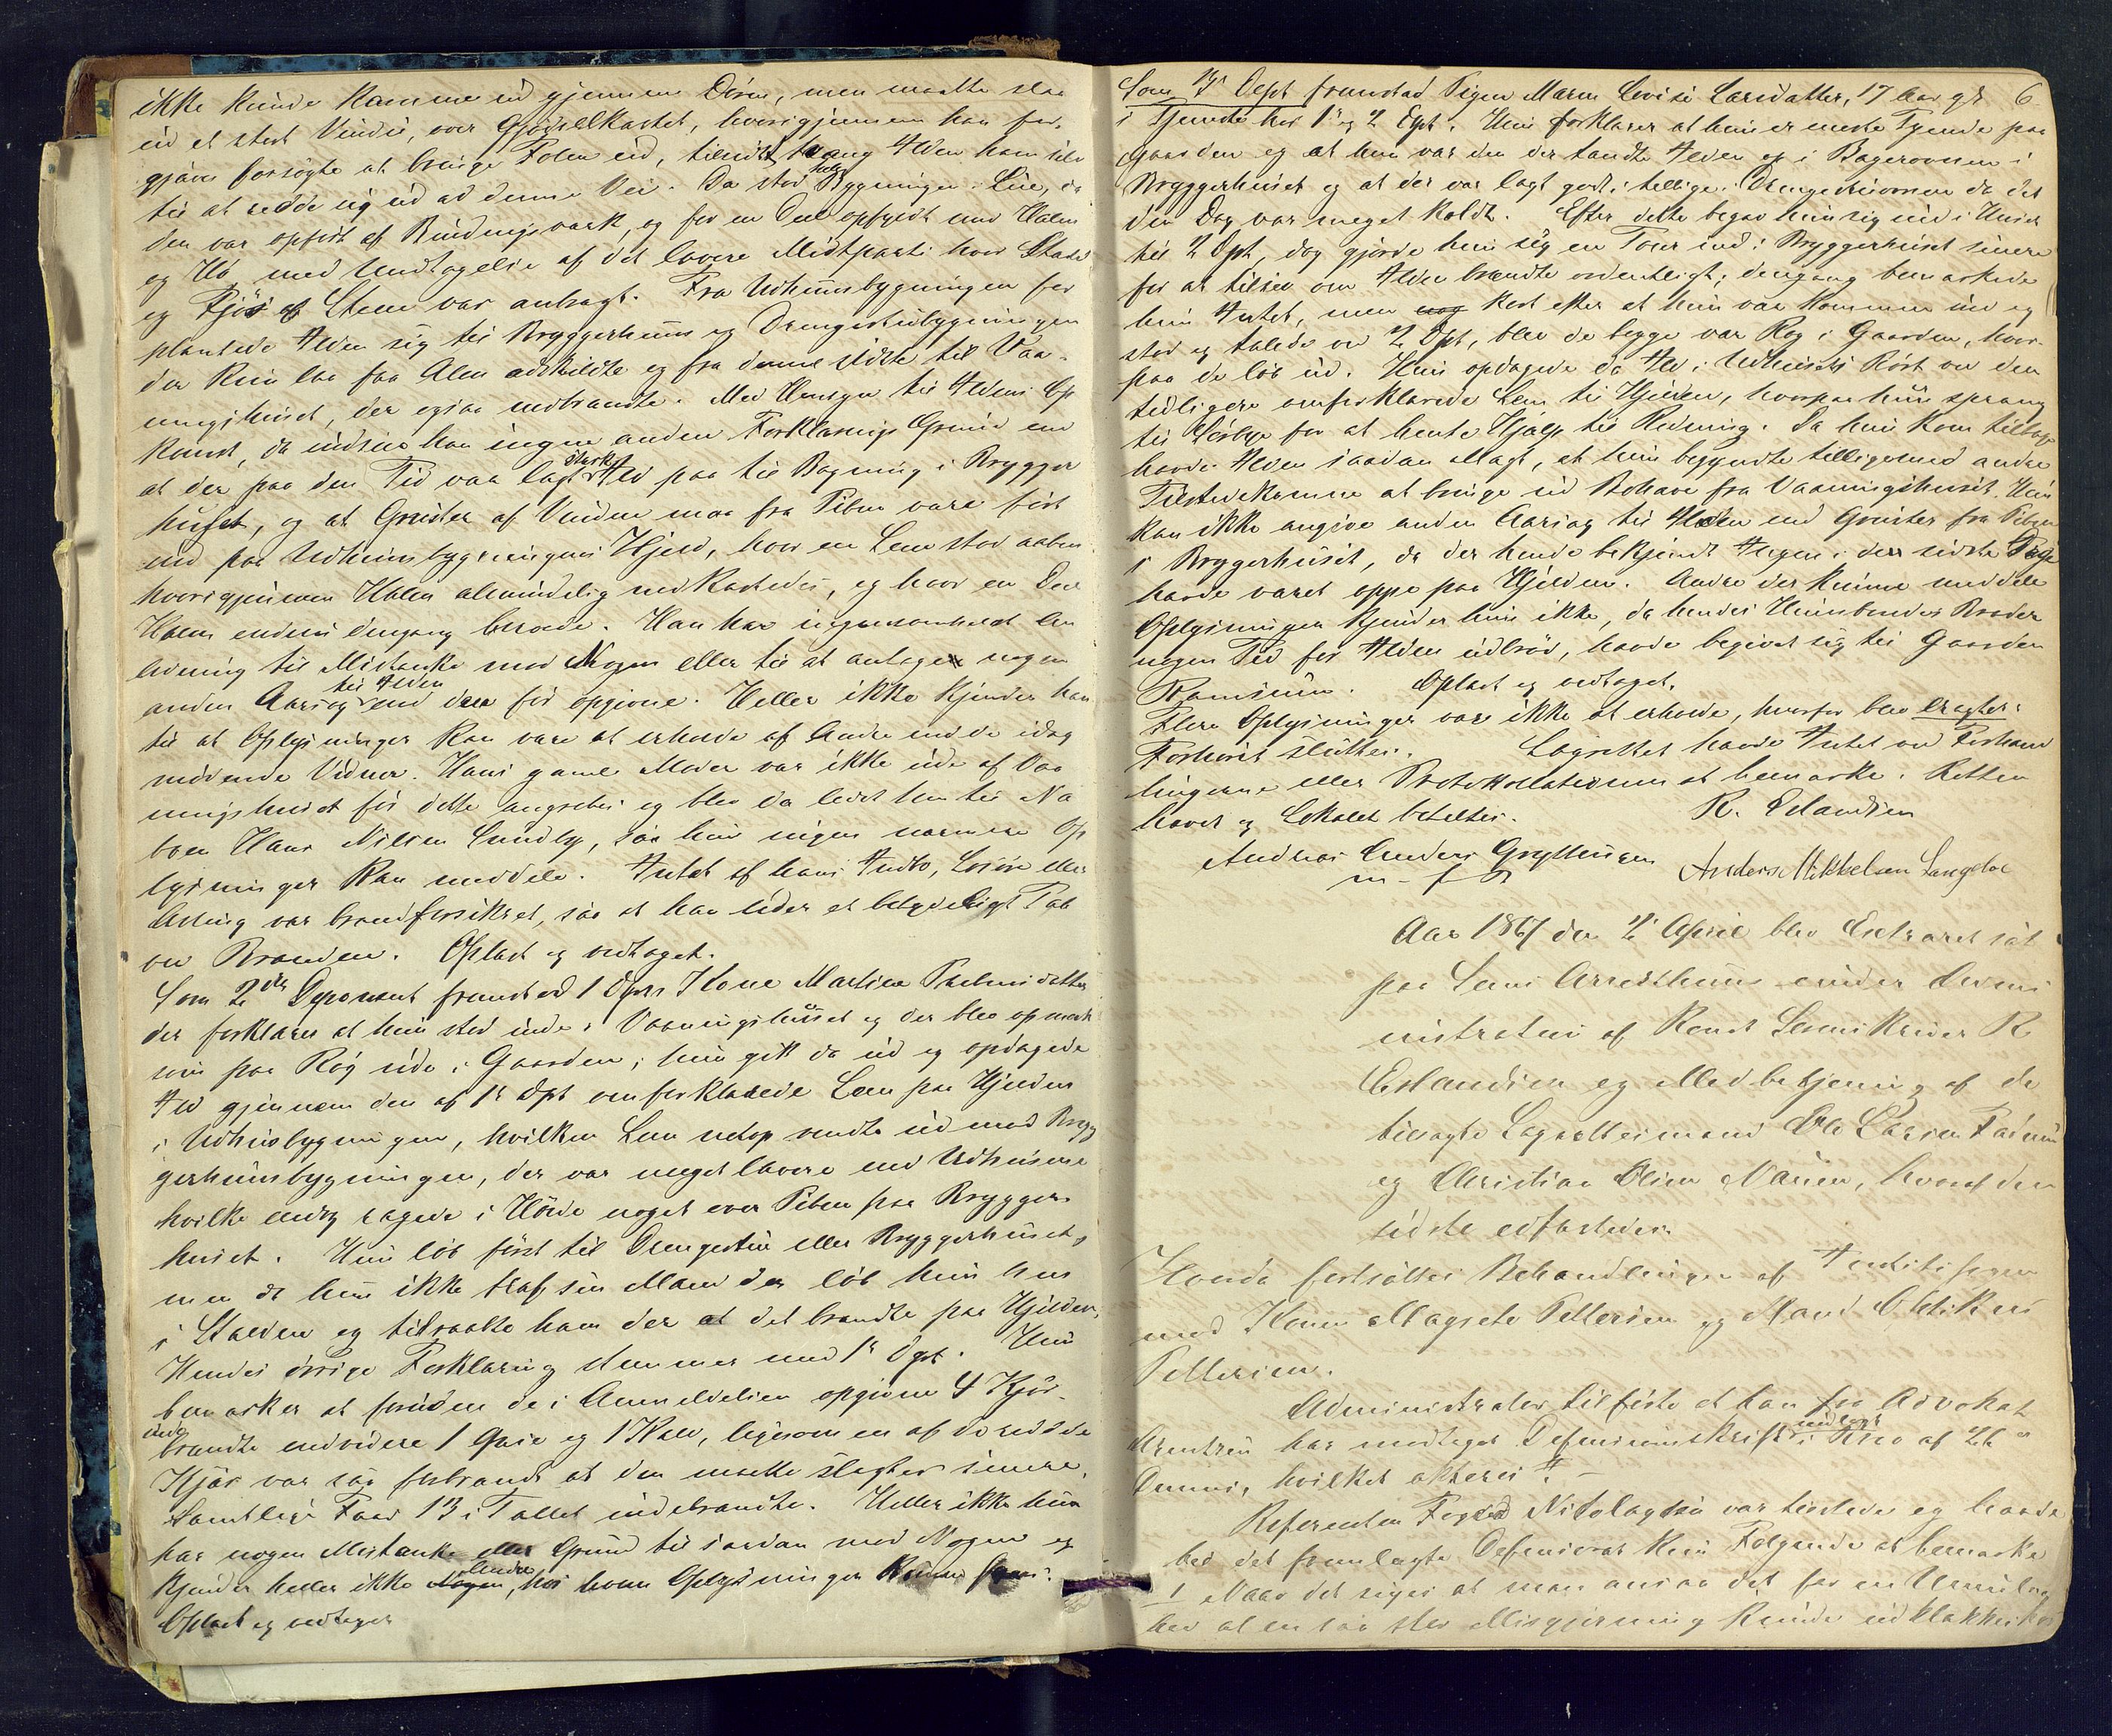 ikke kunde komme ud gjennem Døren, men maatte slaa
ud et stort Vindu, over Gjødselkastet, hvorigjennem han for-
gjæves forsøgte at bringe Folen ud, tilsidst tvang Ilden ham selv
til at redde sig ud ad denne Vei. Da stod hele Bygningen i Lue, da
den var opført af Bindingsværk, og for en Deel opfyldt med Halm
og Hø med Undtagelse af det lavere Midtparti hvor Stald
og Fjøs af Steen var anbragt. Fra Udhuusbygningen for
plantede Ilden sig til Bryggerhuus og Drengestubygningen
der kun laa faa Alen adskildte og fra denne sidste til Vaa-
ningshuset, der ogsaa nedbrændte. Med Hensyn til Ildens Op
komst, da vidste han ingen anden Forklarings Grund end
at der paa den Tid var lagt stærk Ild paa til Bagning i Brygger
huset, og at Gnister af Vinden maa fra Piben være ført
ind paa Udhuusbygningens Hjeld, hvor en Lem stod aaben
hvorigjennem Halm almindelig nedkastedes, og hvor en Deel
Halm endnu dengang beroede. Han har ingensomhelst An
ledning til Mistanke mod Nogen eller til at antage nogen
anden Aarsag til Ilden end den før opgivne. Heller ikke kjender han
til at Oplysninger kan være at erholde af Andre end de idag
mødende Vidner. Hans gamle Moder var ikke ude af Vaa
ningshuset før dette angrebes og blev da ledet hen til Na
boen Hans Nilsen Lundby, saa hun ingen nærmere Op
lysninger kan meddele. Intet af hans Indbo, Løsøre eller
Avling var brandforsikret, saa at han lider et betydeligt Tab
ved Branden. Oplæst og vedtaget.
Som 2den Deponent fremstod 1 Dpts Kone Martine Paulsdatter
der forklarer at hun stod inde i Vaaningshuset og der blev opmærk
som paa Røg ude i Gaarden; hun gik da ud og opdagede
Ild gjennem den af 1ste Dpt omforklarede Lem paa Hjelden
i Udhusbygningen, hvilken Lem netop vendte ud mod Bryg
gerhuusbygningen, der var meget lavere end Udhusene
hvilke endog ragede i Høide noget over Piben paa Brygger
huset. Hun løb først til Drengestu eller Bryggerhuset,
men da hun ikke traf sin Mand der løb hun hen
i Stalden og tilraabte ham der at det brændte paa Hjelden.
Hendes øvrige Forklaring stemmer med 1ste Dpt. Hun
bemærker at foruden de i Anmeldelsen opgivne 4 Kjør
indebrændte endvidere 1 Griis og 1 Kalv, ligesom en af de reddede
Kjør var saa forbrændt at den maatte slagtes senere.
Samtlige Faar 13 i Tallet indebrændte. Heller ikke hun
har nogen Mistanke eller Grund til saadan mod Nogen og
kjender heller ikke Andre, hos hvem Oplysninger kunne faaes.
Oplæst og vedtaget
6
Som 3die Dept fremstod Pigen Maren Lovise Larsdatter, 17 Aar gl
i Tjeneste hos 1ste og 2 Dpt. Hun forklarer at hun er eneste Tjende paa
Gaarden og at hun var den der tændte Ilden op i Bagerovnen i
Bryggerhuset og at der var lagt godt i tillige i Drengestuovnen da det
den Dag var meget koldt. Efter dette begav hun sig ind i Huset
til 2 Dpt, dog gjorde hun sig en Tour ind i Bryggerhuset senere
for at tilsee om Ilden brændte ordentligt; dengang bemærkede
hun Intet, men kort efter at hun var kommen ind og
stod og talede ved 2 Dpt, blev de begge var Røg i Gaarden, hvor-
paa de løb ud. Hun opdagede da Ild i Udhusets Røst ved den
tidligere omforklarede Lem til Hjelden, hvorpaa hun sprang
til Sørbye for at hente Hjælp til Redning. Da hun kom tilbage
havde Ilden saadan Magt, at hun begyndte tilligemed andre
Tilstedekomne at bringe ud Bohave fra Vaaningshuset. Hun
kan ikke angive anden Aarsag til Ilden end Gnister fra Piben
i Bryggerhuset, da der hende bekjendt Ingen i den sidste Tid
havde været oppe paa Hjelden. Andre der kunne meddele
Oplysninger kjender hun ikke, da hendes Huusbondes Broder
nogen Tid før Ilden udbrød, havde begivet sig til Gaarden
Ramsum. Oplæst og vedtaget.
Flere Oplysninger var ikke at erholde, hvorfor blev eragtet:
Forhøret sluttes. Lagrettet havde Intet ved Forhand
lingerne eller Protokollationen at bemærke. Retten
hævet og Lokalet betaltes. R. Erlandsen
Andreas Anders Gryttingen Anders Mikkelsen Langeloe
m. f. P.
Aar 1867 den 2 April blev Extraret sat
paa Lens Arresthuus under Admi
nistration af Const Sorenskriver R
Erlandsen og Medbetjening af de
tilsagte Lagrettesmænd Ole Larsen
og Christian Olsen, hvoraf den
sidste edfæstedes.
Hvorda fortsattes Behandlingen af Justitssagen
mod Konen Magrete Pettersen og Mand
Pettersen.
Administrator tilførte at han fra Advokat
Arentzen har modtaget Defensionsskrift indlagt i af 26
Dennes, hvilket akteres
Referenten Foged Nicolaysen var tilstede og havde
ved det fremlagte Defensorat kun Følgende at bemærke
1 Naar det siges at man ansaa det for en Umulig
hed at en saa stor Misgjerning kunde udklækkes hos